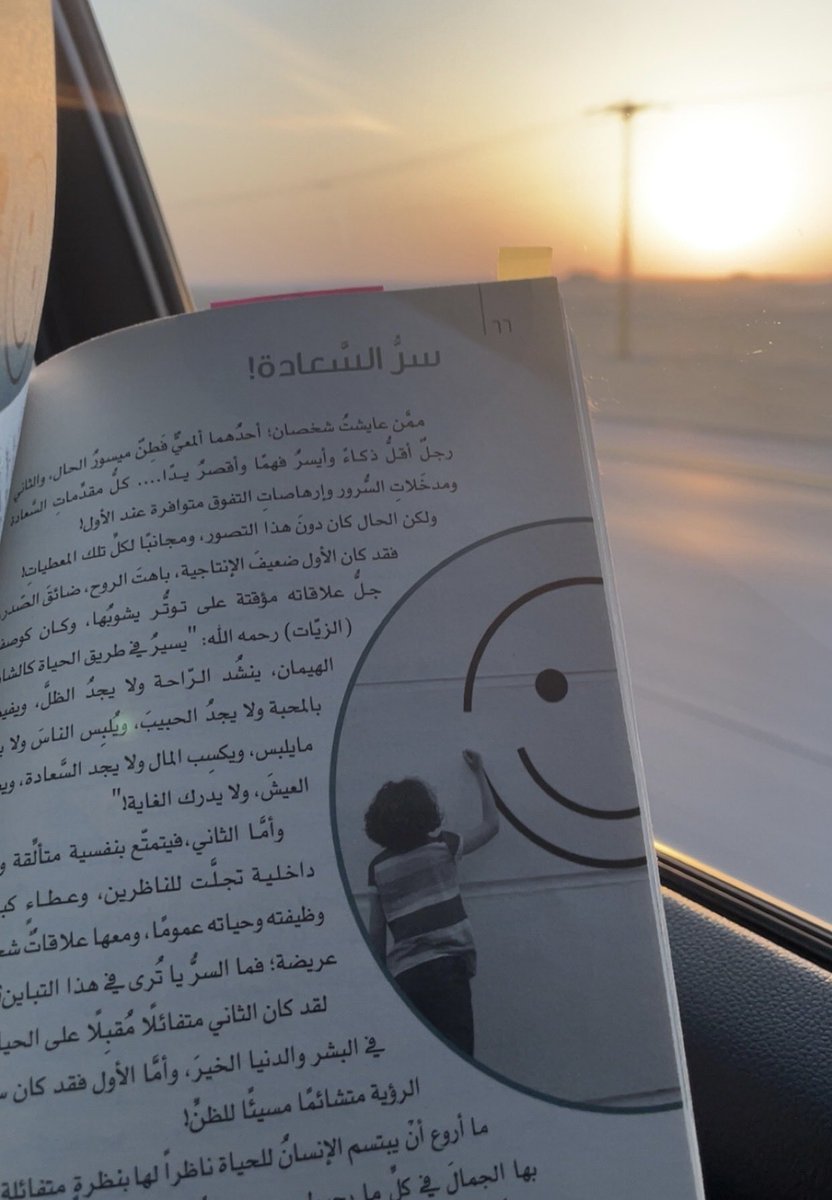 ٦٦
سرُّ السَّعادة!
ممَّن عايشتُ شخصان؛ أحدُهما ألمعيٌّ فَطِنٌ ميسورُ الحال، والثاني
رجلٌ أقلُّ ذكاءً وأيسرُ فهمًا وأقصرُ يدًا.... كلُّ مقدِّماتِ السَّعادة
ومدخَلاتِ السُّرور وإرهاصاتِ التفوق متوافرة عند الأول!
ولكن الحال كان دونَ هذا التصور، ومجانبًا لكلِّ تلك المعطياتِ!
فقد كان الأول ضعيفَ الإنتاجية، باهتَ الروح، ضائقَ الصّدر
جلُّ علاقاته مؤقتة على توتُّر يشوبُها، وكان كوصف
(الزيّات) رحمه الله: "يسيرُ في طريق الحياة
الهيمان، ينشُد الرّاحة ولا يجدُ الظلَّ،
بالمحبة ولا يجدُ الحبيبَ، ويُلبِس الناسَ ولا
مايلبس، ويكسِب المال ولا يجد السَّعادة،
العيشَ، ولا يدرك الغاية!"
وأمَّا الثاني،فيتمتّع بنفسية متألِّقة
داخلية تجلَّت للناظرين، وعطاءٍ
وظيفته وحياته عمومًا، ومعها علاقاتٌ
عريضة؛ فما السرُّ يا تُرى في هذا التباين
لقد كان الثاني متفائلًا مُقبِلًا على
في البشر والدنيا الخيرَ، وأمَّا الأول فقد كان
الرؤية متشائمًا مسيئًا للظنِّ!
ما أروع أنْ يبتسم الإنسانُ للحياة ناظراً لها بنظرةٍ متفائلة
بها الجمالَ في كلِّ ما